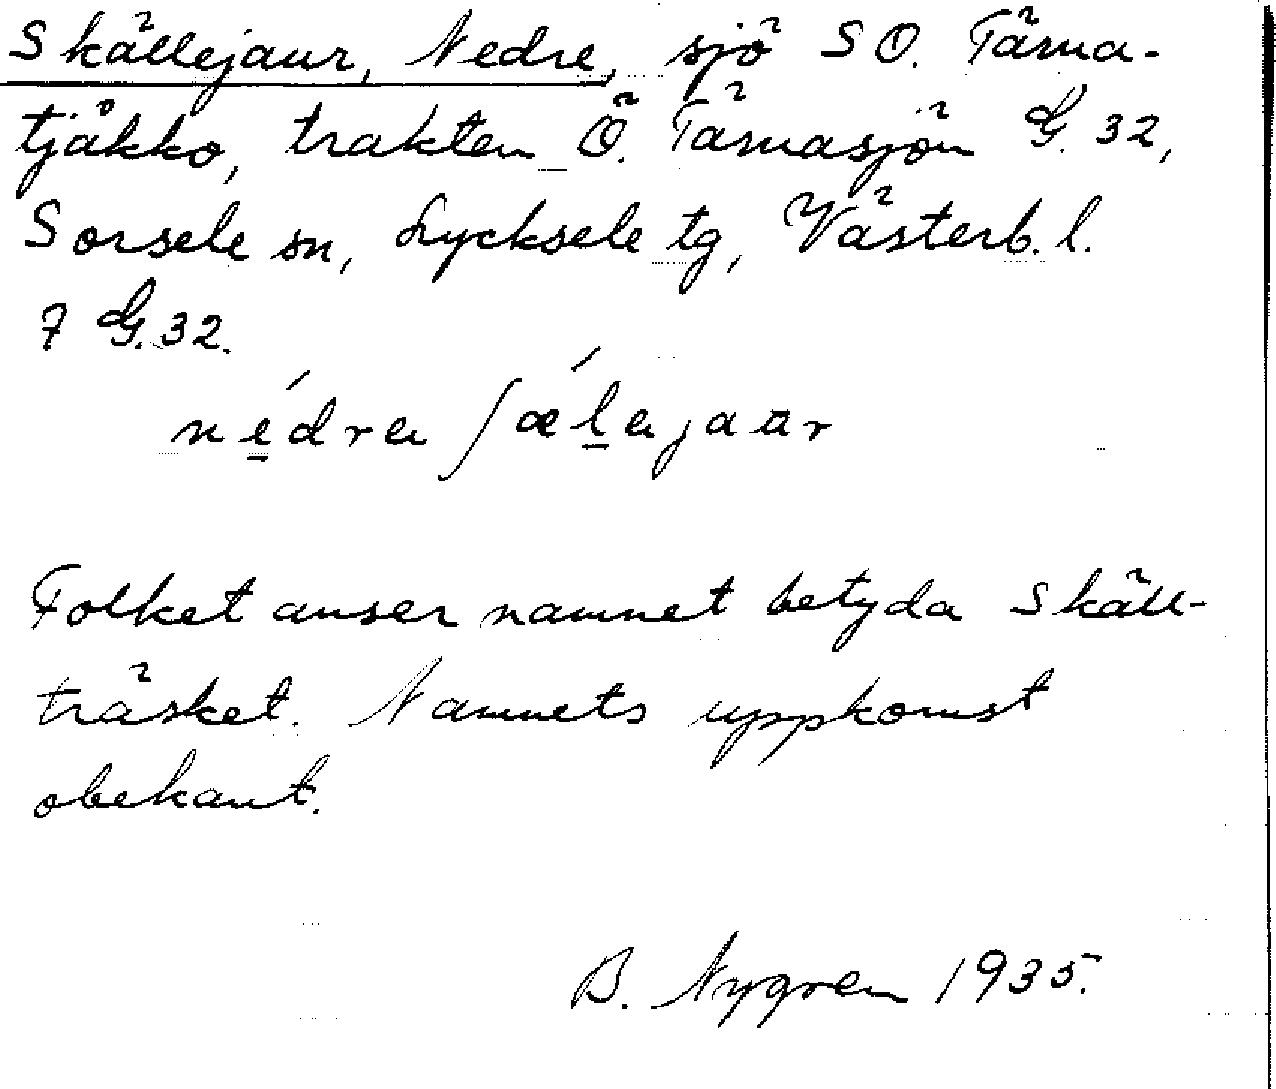 Skällejaur, Nedre, sjö SO. Tärna-
tjåkko, trakten Ö. Tärnasjön G. 32,
Sorsele sn, Lycksele tg, Västerb. l.
7 G. 32.
nédrɐ ʃæ´lɐjaɑr
Folket anser namnet betyda Skäll-
träsket. Namnets uppkomst
obekant.
B. Nygren 1935.